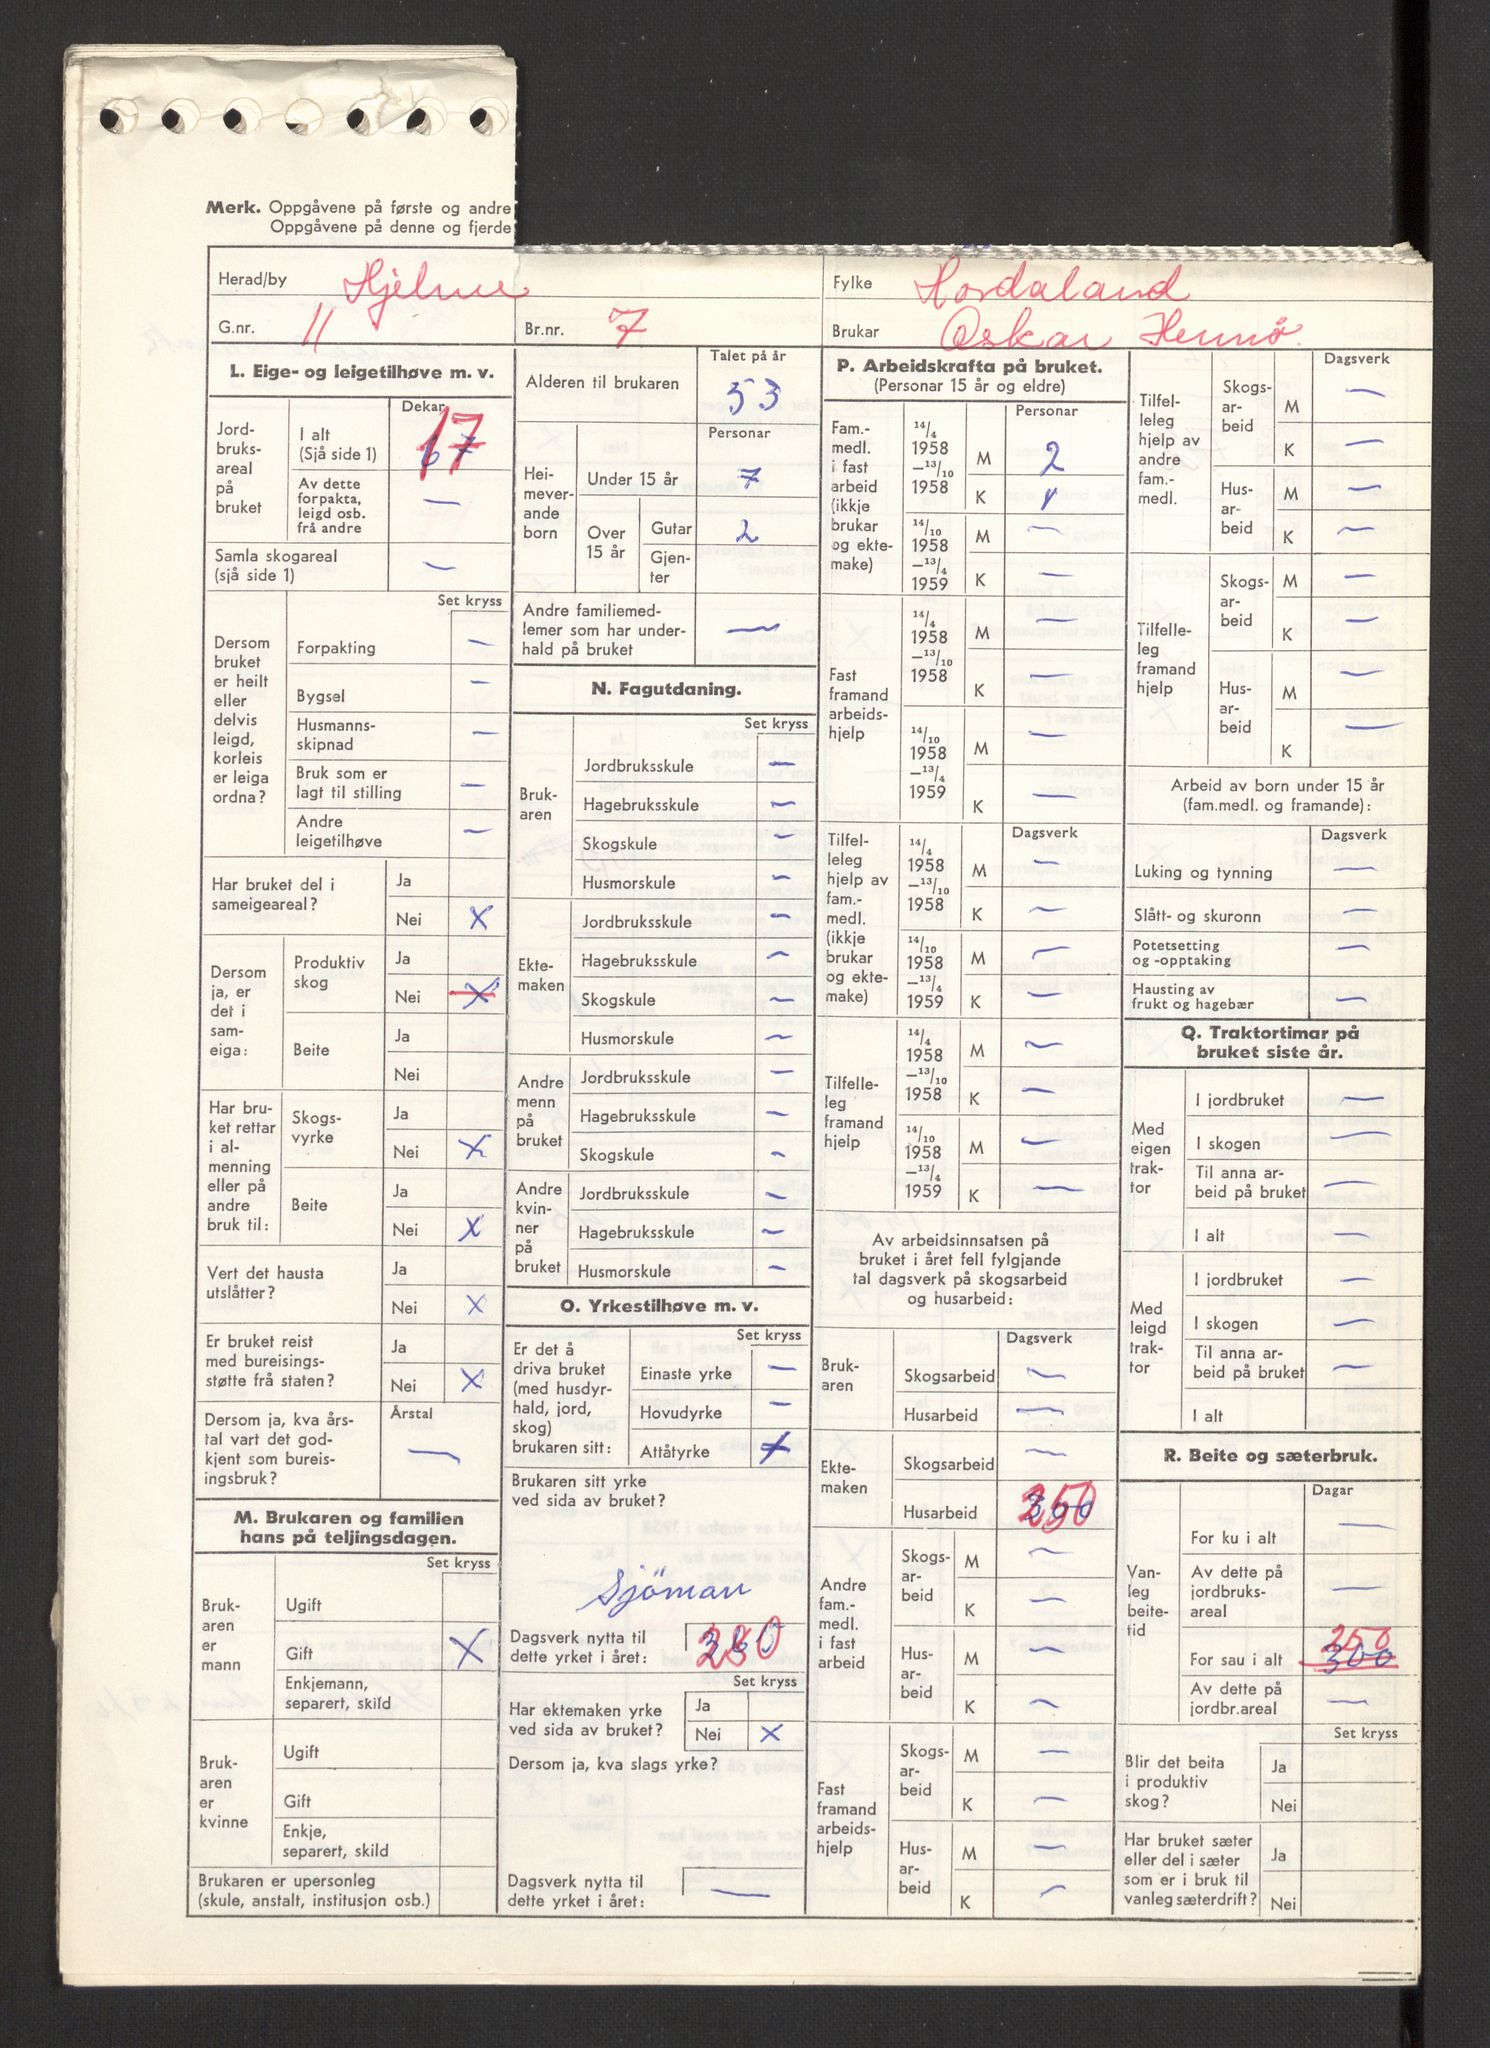 Merk. Oppgåvene på første og andre
Oppgåvene på denne og fjerde
Herad/by Hjelme
Fylke Hordaland
G.nr. 11 Br.nr. 7
Brukar Oskar Hernö
L. Eige- og leigetilhøve m. v.
Dekar
Jordbruksareal på bruket
I alt (Sjå side 1) 17
Av dette forpakta, leigd osb. frå andre —
Samla skogareal (sjå side 1) —
Set kryss
Dersom bruket er heilt eller delvis leigd, korleis er leiga ordna?
Forpakting —
Bygsel —
Husmannsskipnad —
Bruk som er lagt til stilling —
Andre leigetilhøve —
Har bruket del i sameigeareal?
Ja
Nei X
Dersom ja, er det i sameiga:
Produktiv skog
Ja
Nei X
Beite
Ja
Nei
Har bruket rettar i almenning eller på andre bruk til:
Skogsvyrke
Ja
Nei X
Beite
Ja
Nei X
Vert det hausta utslåtter?
Ja
Nei X
Er bruket reist med bureisingsstøtte frå staten?
Ja
Nei X
Dersom ja, kva årstal vart det godkjent som bureisingsbruk?
Årstal
—
M. Brukaren og familien hans på teljingsdagen.
Set kryss
Brukaren er mann
Ugift
Gift X
Enkjemann, separert, skild
Brukaren er kvinne
Ugift
Gift
Enkje, separert, skild
Brukaren er upersonleg (skule, anstalt, institusjon osb.)
Talet på år
Alderen til brukaren 53
Personar
Heimeverande born
Under 15 år 7
Over 15 år
Gutar 2
Gjenter
Andre familiemedlemer som har underhald på bruket —
N. Fagutdaning.
Set kryss
Brukaren
Jordbruksskule —
Hagebruksskule —
Skogskule —
Husmorskule —
Ektemaken
Jordbruksskule —
Hagebruksskule —
Skogskule —
Husmorskule —
Andre menn på bruket
Jordbruksskule —
Hagebruksskule —
Skogskule —
Andre kvinner på bruket
Jordbruksskule —
Hagebruksskule —
Husmorskule —
O. Yrkestilhøve m. v.
Set kryss
Er det å driva bruket (med husdyrhald, jord, skog) brukaren sitt:
Einaste yrke —
Hovudyrke —
Attåtyrke X
Brukaren sitt yrke ved sida av bruket?
Sjöman
Dagsverk nytta til dette yrket i året:
Set kryss
Har ektemaken yrke ved sida av bruket?
Ja
Nei X
Dersom ja, kva slags yrke?
Dagsverk nytta til dette yrket i året: —
P. Arbeidskrafta på bruket.
(Personar 15 år og eldre)
Personar
Fam.medl. i fast arbeid (ikkje brukar og ektemake)
14/4 1958 — 13/10 1958
M 2
K 1
14/10 1958 — 13/4 1959
M —
K —
Fast framand arbeidshjelp
14/4 1958 — 13/10 1958
M —
K —
14/10 1958 — 13/4 1959
M —
K —
Dagsverk
Tilfelleleg hjelp av fam.medl. (ikkje brukar og ektemake)
14/4 1958 — 13/10 1958
M —
K —
14/10 1958 — 13/4 1959
M —
K —
Tilfelleleg framand hjelp
14/4 1958 — 13/10 1958
M —
K —
14/10 1958 — 13/4 1959
M —
K —
Av arbeidsinnsatsen på bruket i året fell fylgjande tal dagsverk på skogsarbeid og husarbeid:
Dagsverk
Brukaren
Skogsarbeid —
Husarbeid —
Ektemaken
Skogsarbeid —
Husarbeid 300 250
Andre fam.medl. i fast arbeid
Skogsarbeid
M —
K —
Husarbeid
M —
K —
Fast framand arbeidshjelp
Skogsarbeid
M —
K —
Husarbeid
M —
K —
Dagsverk
Tilfelleleg hjelp av andre fam.medl.
Skogsarbeid
M —
K —
Husarbeid
M —
K —
Tilfelleleg framand hjelp
Skogsarbeid
M —
K —
Husarbeid
M —
K —
Arbeid av born under 15 år (fam.medl. og framande):
Dagsverk
Luking og tynning —
Slått- og skuronn —
Potetsetting og -opptaking —
Hausting av frukt og hagebær —
Q. Traktortimar på bruket siste år.
Med eigen traktor
I jordbruket —
I skogen —
Til anna arbeid på bruket —
I alt —
Med leigd traktor
I jordbruket —
I skogen —
Til anna arbeid på bruket —
I alt —
R. Beite og sæterbruk.
Dagar
Vanleg beitetid
For ku i alt —
Av dette på jordbruksareal —
For sau i alt 250 300
Av dette på jordbr.areal —
Set kryss
Blir det beita i produktiv skog?
Ja
Nei
Har bruket sæter eller del i sæter som er i bruk til vanleg sæterdrift?
Ja
Nei